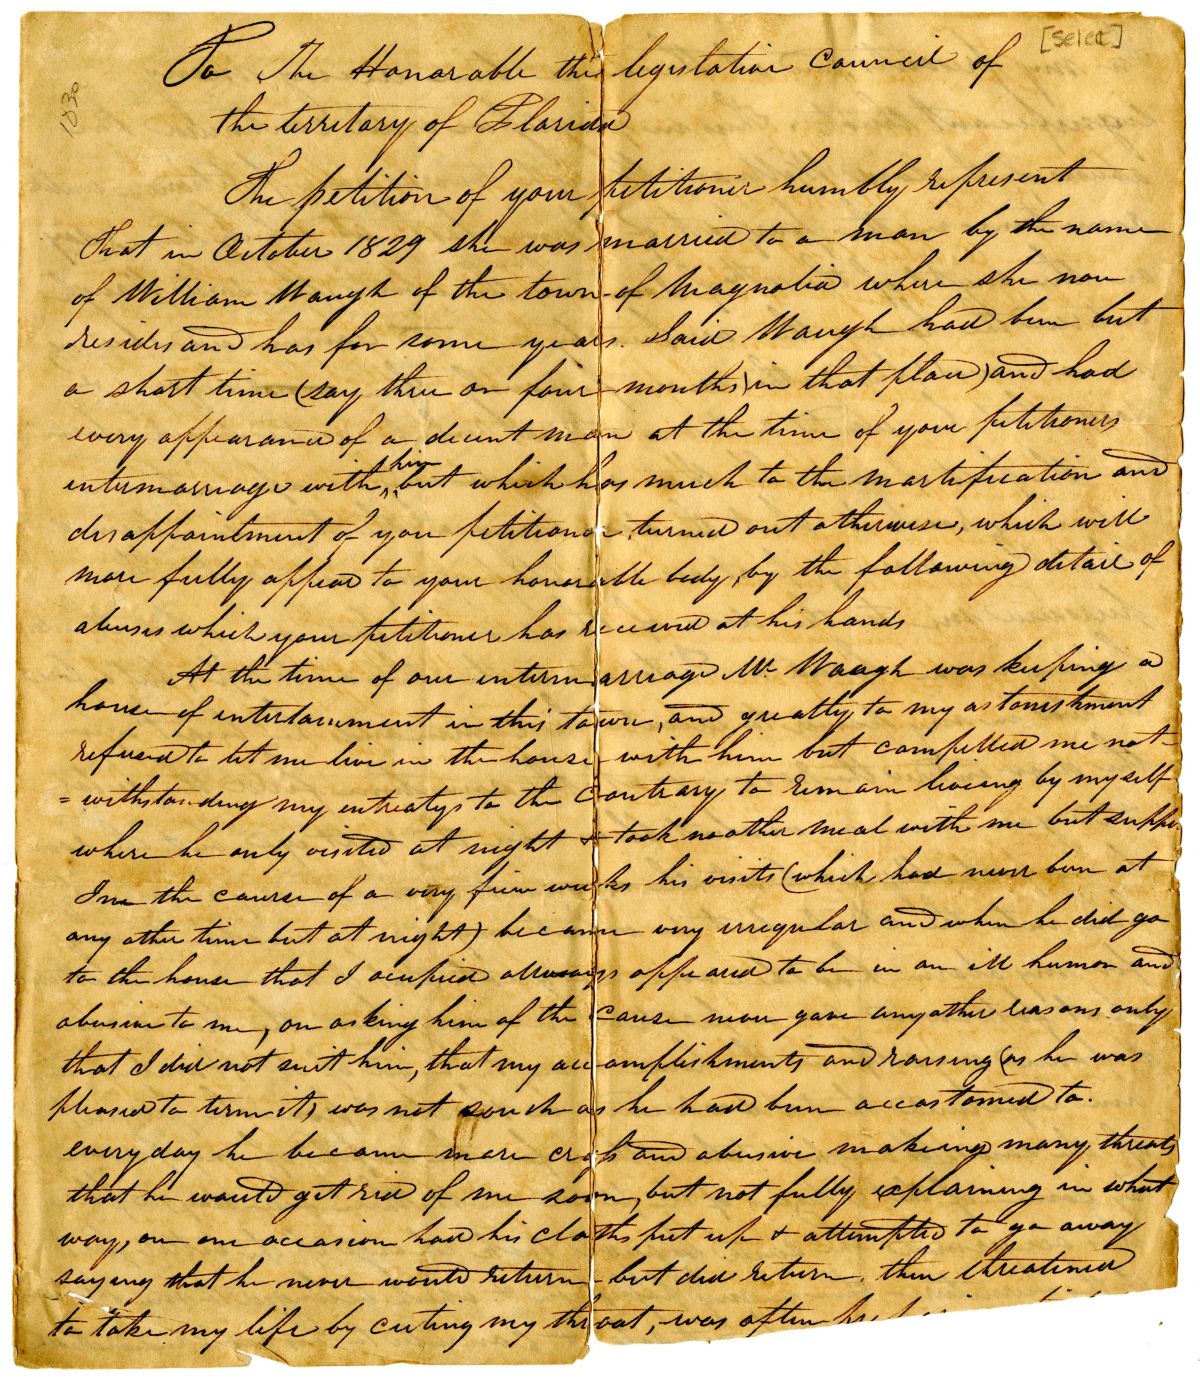 [Select]
1830
To The Honorable the legislative Council of
the territory of Florida
The petition of your petitioner humbly represent
That in October 1829 she was married to a man by the name
of William Waugh of the town of Magnolia where she now
resides and has for some years. Said Waugh had been but
a short time (say three or four months) in that place) and had
every appearance of a decent man at the time of your petitioners
intermarriage with him but which has much to the mortification and
disappointment of your petitioner, turned out otherwise, which will
more fully appear to your honorable body, by the following detail of
abuses which your petitioner has received at his hands
At the time of our intermarriage Mr. Waugh was keeping a
house of entertainment in this towne, and greatly to my astonishment
refused to let me live in the house with him but compelled me not-
=withstanding my entreatys to the contrary to remain liveing by myself
where he only visited at night & took no other meal with me but supper
In the course of a very few weeks his visits (which had never been at
any other time but at night) became very irregular and when he did go
to the house that I ocupied allways appeared to be in an ill humor and
abusive to me, on asking him of the cause never gave any other reasons only
that I did not suit him, that my accomplishments and raising (as he was
pleased to term it) was not such as he had been accostomed to.
everyday he became more cross and abusive makeing many threats
that he would get rid of me soon, but not fully explaining in what
way, on one occasion had his cloths put up & attempted to go away
saying that he never would return but did return, then threatened
to take my life by cuting my throat, was often